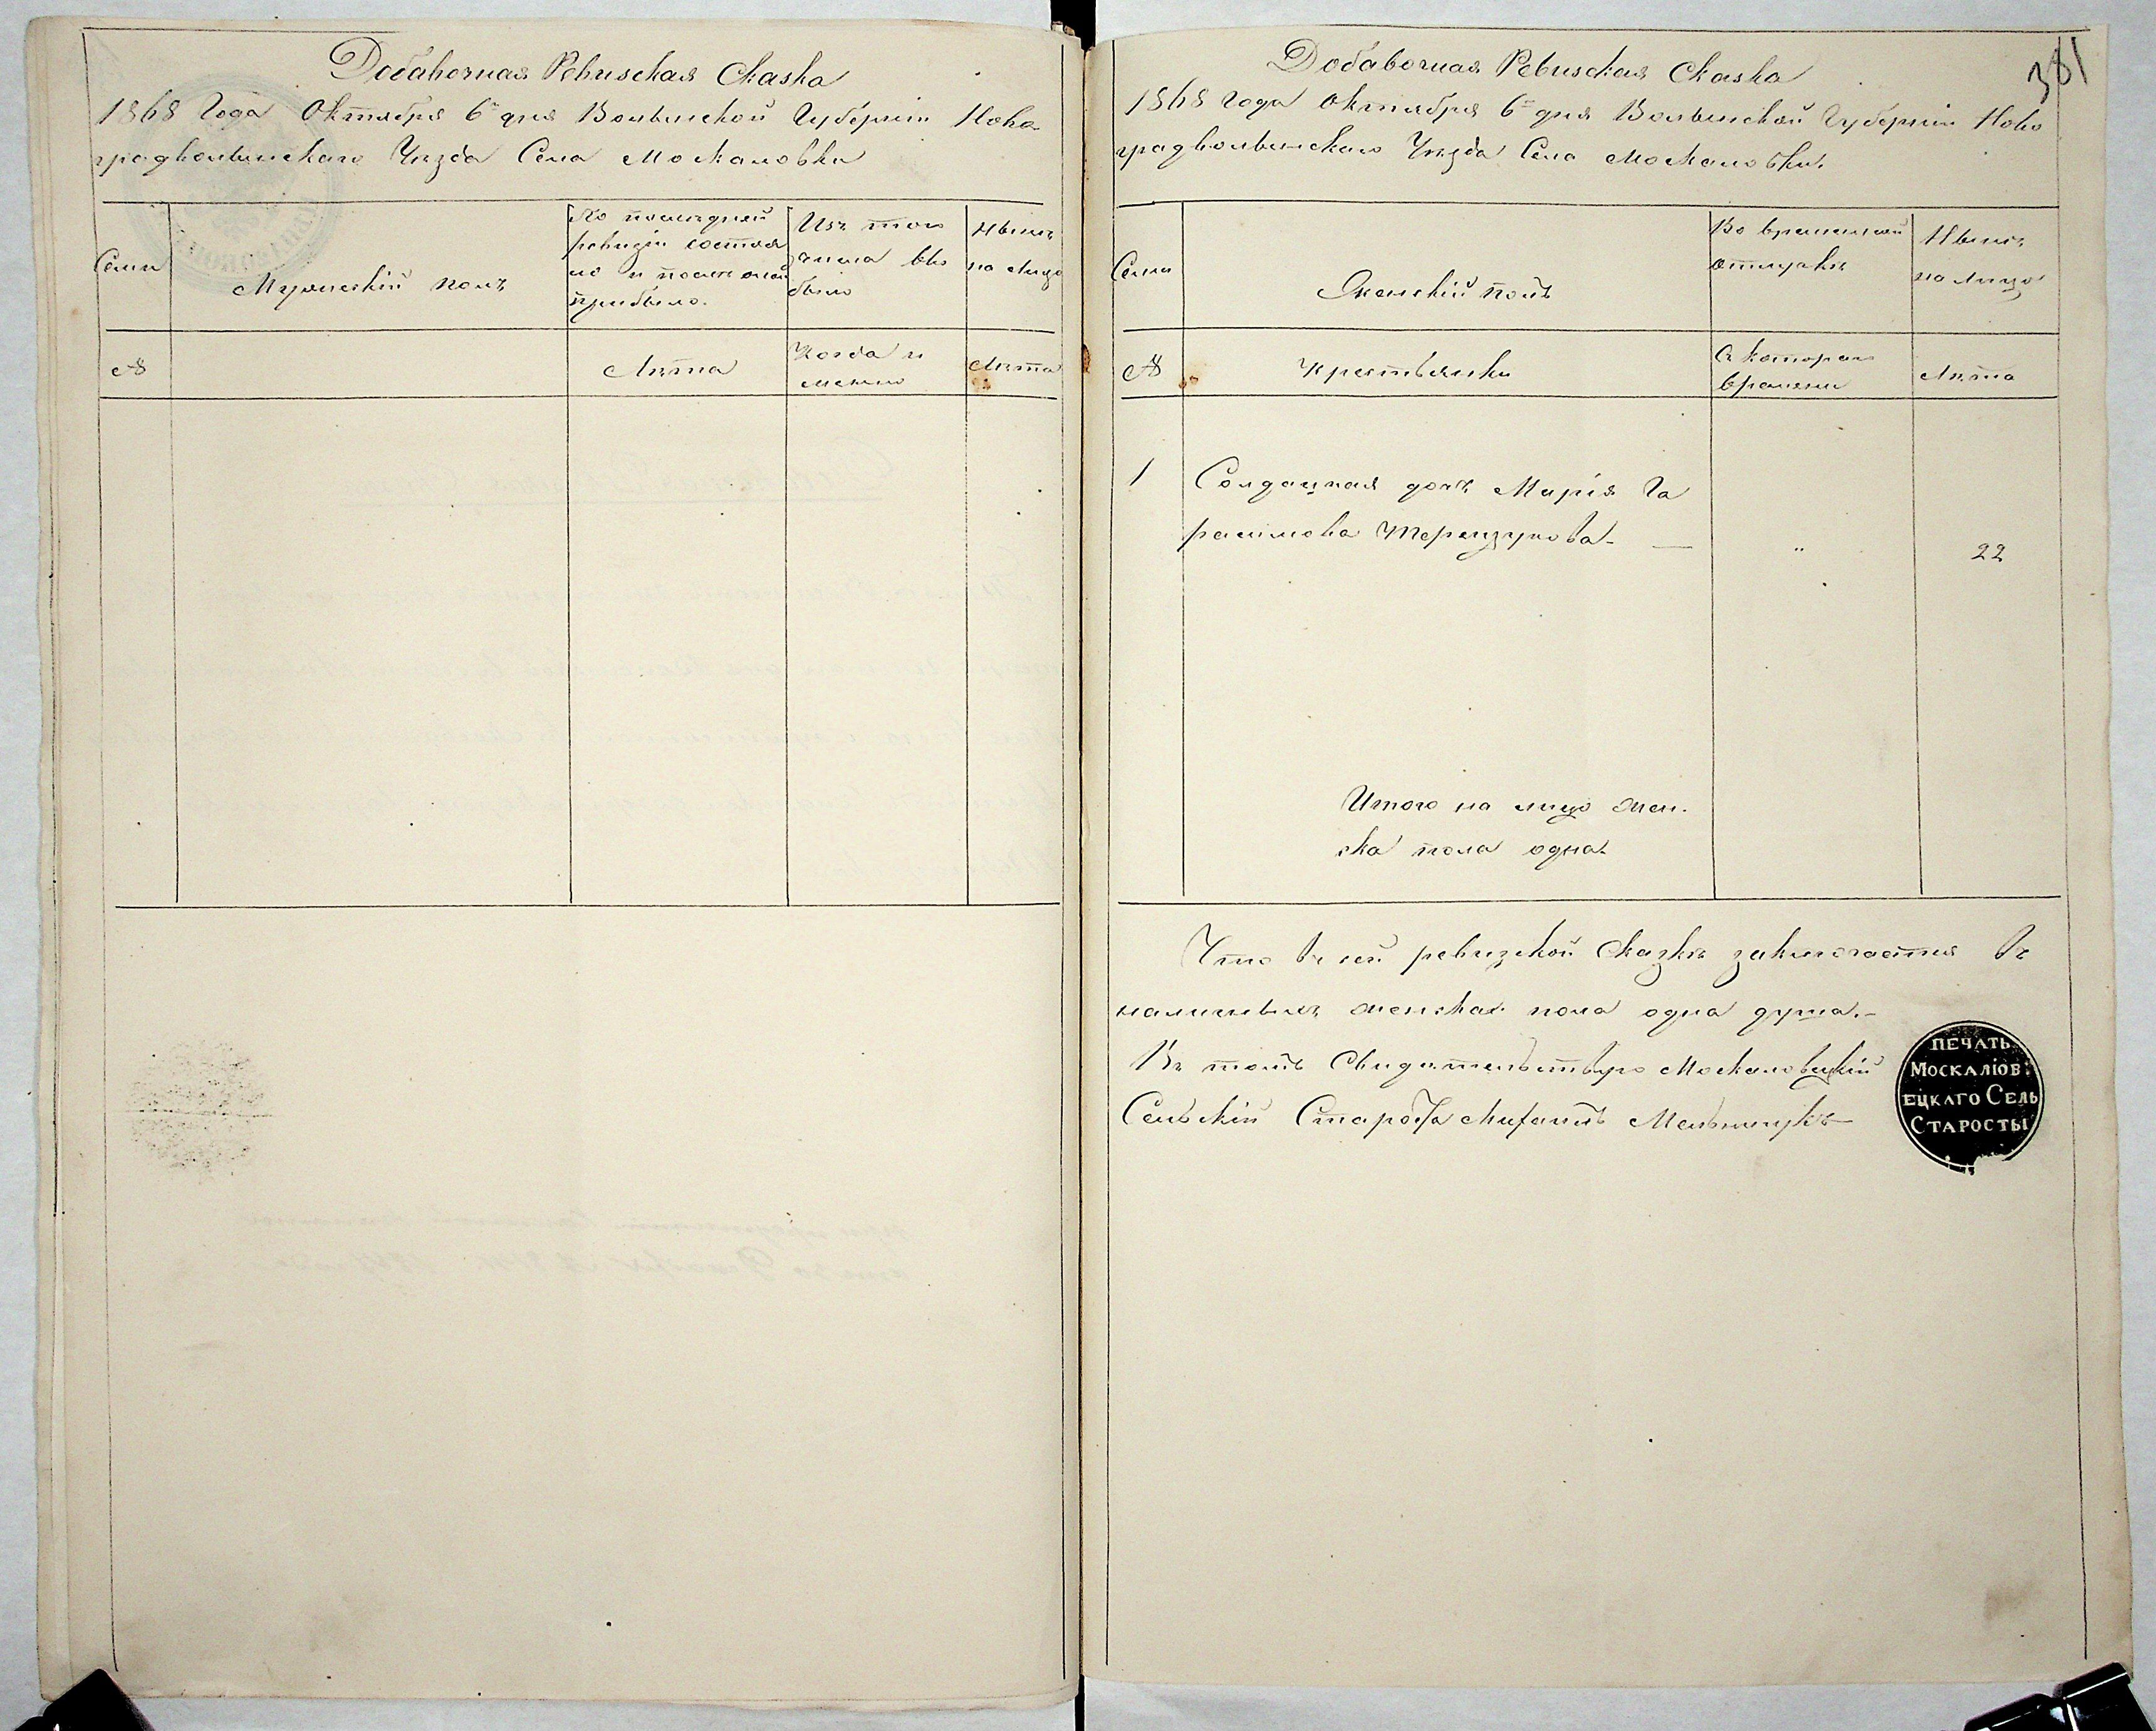 Добавочная Ревиская Скаска
1868 Года Октября 6 дня Волынской Губерніи Ново
градволынскаго Уѣзда Села Москаловки
Семи
Мужескій полъ
По последней
ревизіи состоя
ло и после оной
прибыло.
Изъ того
числа вы
было
Нынѣ
на лицо
№
Лѣта
Когда и
менно
Лѣта
381
Добавочная Ревиская Скаска
1868 Года Октября 6 дня Волынской Губерніи Ново
градволынскаго Уѣзда Села Москаловки.
Семи
Женскій полъ
Во временной
отлучкѣ
Нынѣ
на лицо
№
Крестьянки
Съ котораго
времени
Лѣта
1 Солдацкая дочь Марія Га
расимова — " 22
Итого на лицо жен.
ска пола одна.
Что въ сей ревизской сказкѣ заключается въ
наличныхъ женска пола одна душа.-
Въ томъ Свидетельствую Москаловецкій
Сельскій Староста Михаилъ Мельничукъ
ПЕЧАТЬ
МОСКАЛІОВ
ЕЦКАГО СЕЛЬ
СТАРОСТЫ